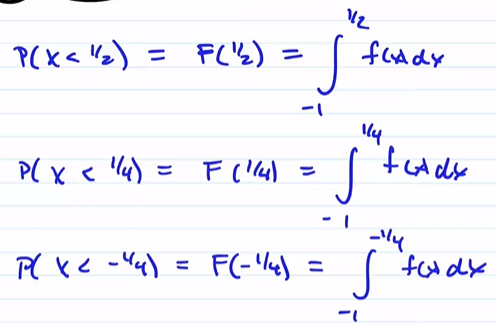 P(X < 1/2) = F(1/2) = ∫_{-1}^{1/2} f(x)dx
P(X < 1/4) = F(1/4) = ∫_{-1}^{1/4} f(x)dx
P(X < -1/4) = F(-1/4) = ∫_{-1}^{-1/4} f(x)dx